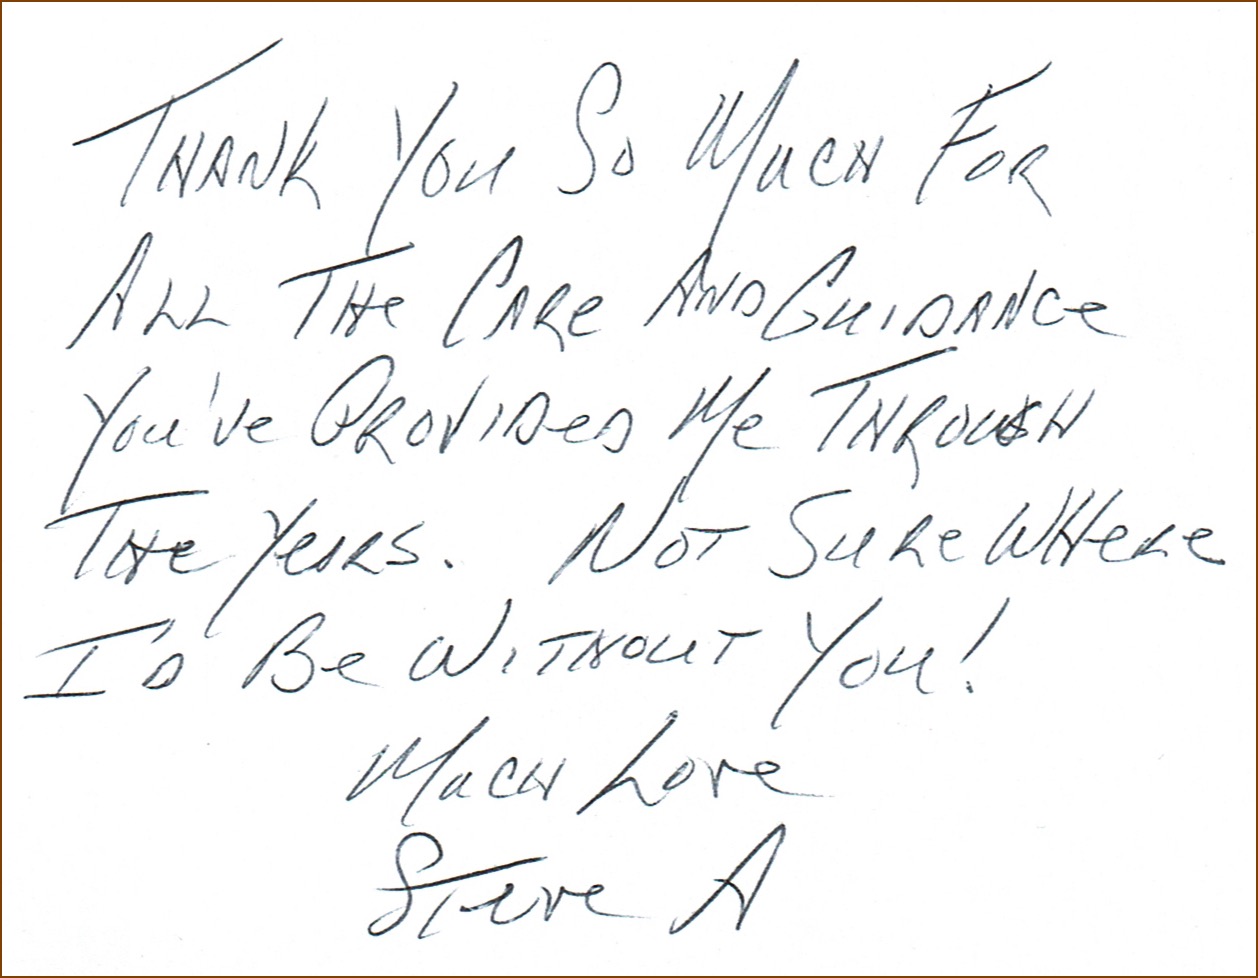 Thank You So Much For
All The Care And Guidance
You've Provided Me Through
The Years. Not Sure Where
I'd Be Without You!
Much Love
Steve A